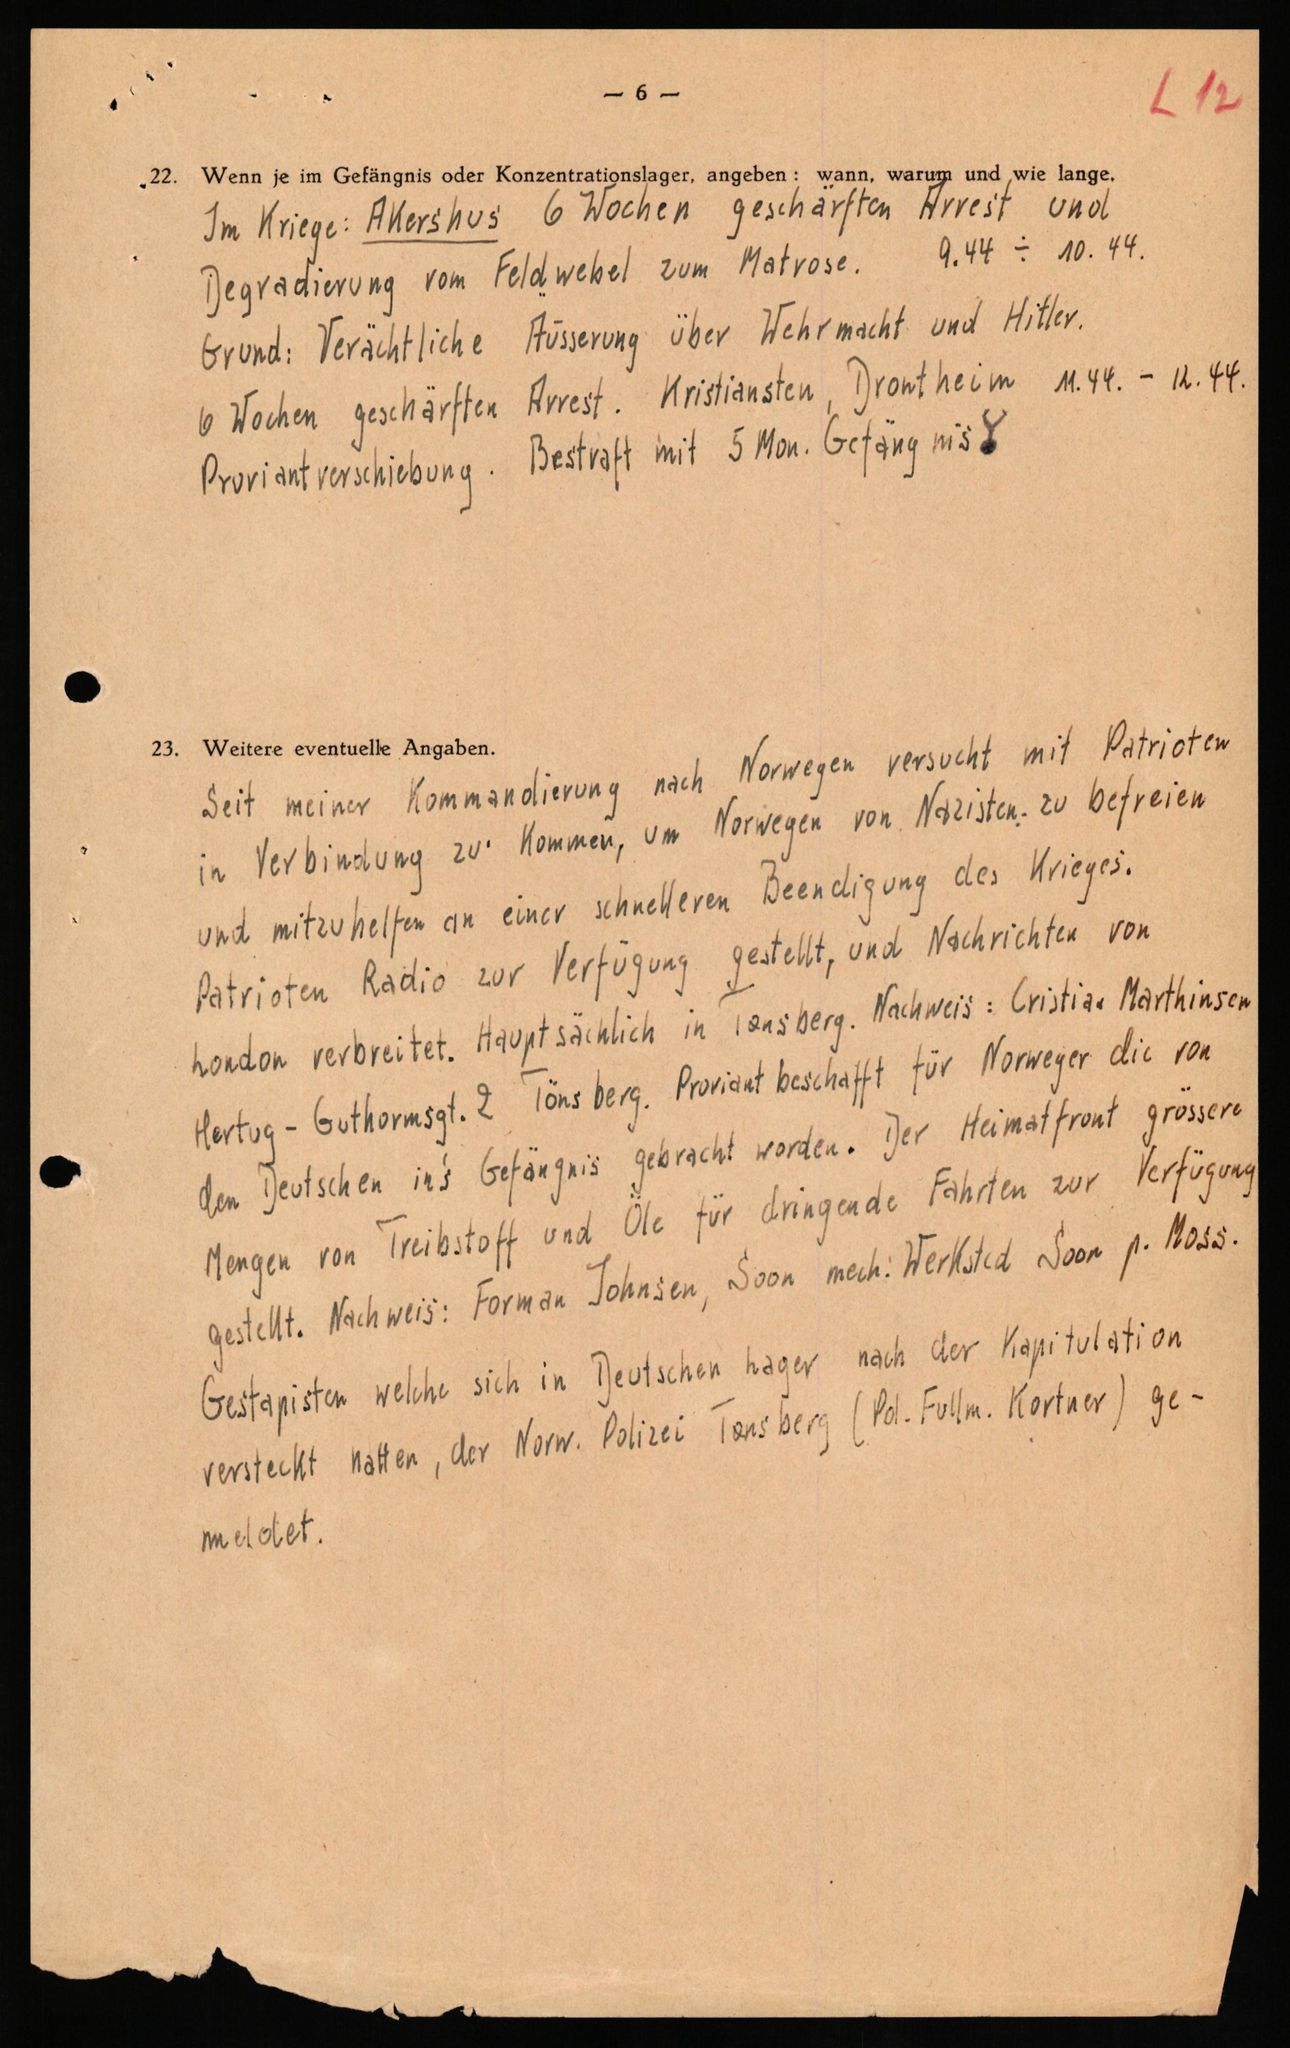 — 6 —
L 12
22. Wenn je im Gefängnis oder Konzentrationslager, angeben: wann, warum und wie lange.
Im Kriege: Akershus 6 Wochen geschärften Arrest und
Degradierung vom Feldwebel zum Matrose. 9.44 ÷ 10.44.
Grund: Verächtliche Äusserung über Wehrmacht und Hitler.
6 Wochen geschärften Arrest. Kristiansten, Drontheim 11.44. - 12.44.
Proviantverschiebung. Bestraft mit 5 Mon. Gefängnis
23. Weitere eventuelle Angaben.
Seit meiner Kommandierung nach Norwegen versucht mit Patrioten
in Verbindung zu kommen, um Norwegen von Nazisten zu befreien
und mitzuhelfen an einer schnelleren Beendigung des Krieges.
Patrioten Radio zur Verfügung gestellt, und Nachrichten von
London verbreitet. Hauptsächlich in Tønsberg. Nachweis: Cristian Marthinsen
Hertug-Guthormsgt. 2 Tönsberg. Proviant beschafft für Norweger die von
den Deutschen in's Gefängnis gebracht worden. Der Heimatfront grössere
Mengen von Treibstoff und Öle für dringende Fahrten zur Verfügung
gestellt. Nachweis: Forman Johnsen, Soon mech. Werksted Soon p. Moss.
Gestapisten welche sich in Deutschen Lager nach der Kapitulation
versteckt hatten, der Norw. Polizei Tønsberg (Pol. Fullm. Kortner) ge-
meldet.